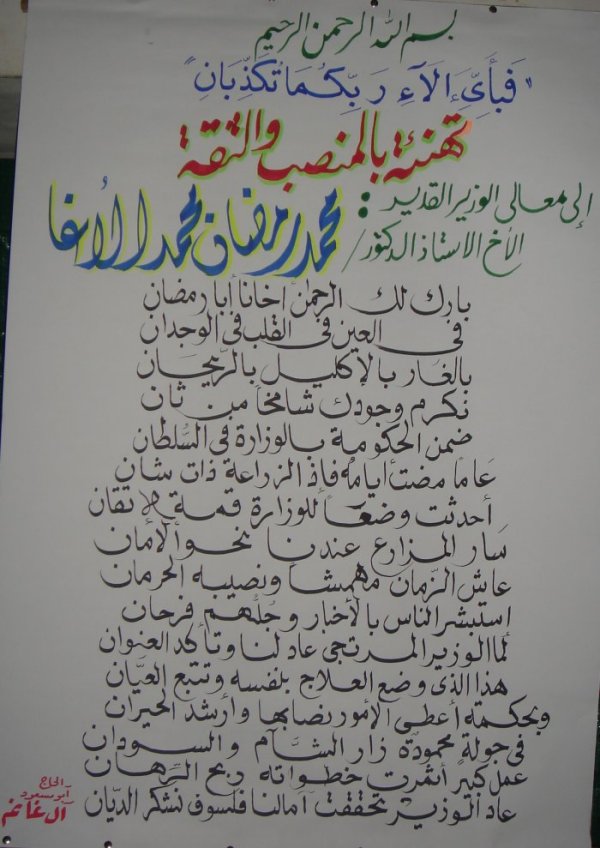 بسم الله الرحمن الرحيم
"فَبِأَيِّ آلَآءِ رَبِّكُمَا تُكَذِّبَانِ"
تهنئة بالمنصب والثقة
إلى معالي الوزير القدير :
الأخ الاستاذ الدكتور/ محمد رمضان محمد الأغا
بارك لك الرحمن أخانا أبا رمضان
في العين في القلب في الوجدان
بالغار بالإكليل بالرَّيحَان
نكرم وجودك شامخاً من ثان
ضمن الحكومة بالوزارة في السُّلطان
عاماً مضت أيامه فإذ الزراعة ذات شان
أحدثت وضعاً للوزارة قمة الإتقان
سَار المزارع عندنا نحو الأمان
عاش الزمان مهمشاً ونصيبه الحرمان
استبشر الناس بالأخبار وجُلُّهم فرحان
لما الوزير المرتجى عاد لنا وتأكد العنوان
هذا الذي وضع العلاج بلفسه وتتبع العيَّان
وبحكمه أعطى الأمور نصابها وأرشد الحيران
في جولة محمودة زار الشآم والسودان
عمل كبيرٌ أثمرت خطواته ربح الرِّهان
عاد الوزير تحققت آمالنا فلسوف نشكر الديّان
الحاج
أبو مسعود
آل غانم